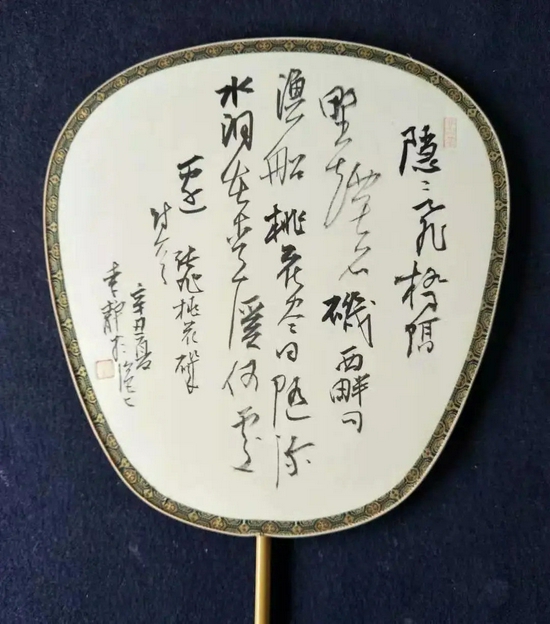 隱〻飛橋隔
野煙石磯西畔问
漁船桃花尽日随流
水洞在清溪何處
邊
張旭桃花溪
辛丑夏